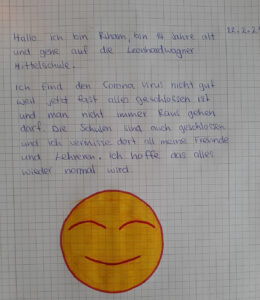 22.2.21
Hallo ich bin Riham, bin 14 Jahre alt
und gehe auf die Leonhardwagner
Mittelschule.
Ich find den Corona Virus nicht gut
weil jetzt fast alles geschlossen ist
und man nicht immer Raus gehen
darf. Die Schulen sind auch geschlossen
und ich vermisse dort all meine Freunde
und Lehrern. Ich hoffe das alles
wieder normal wird.